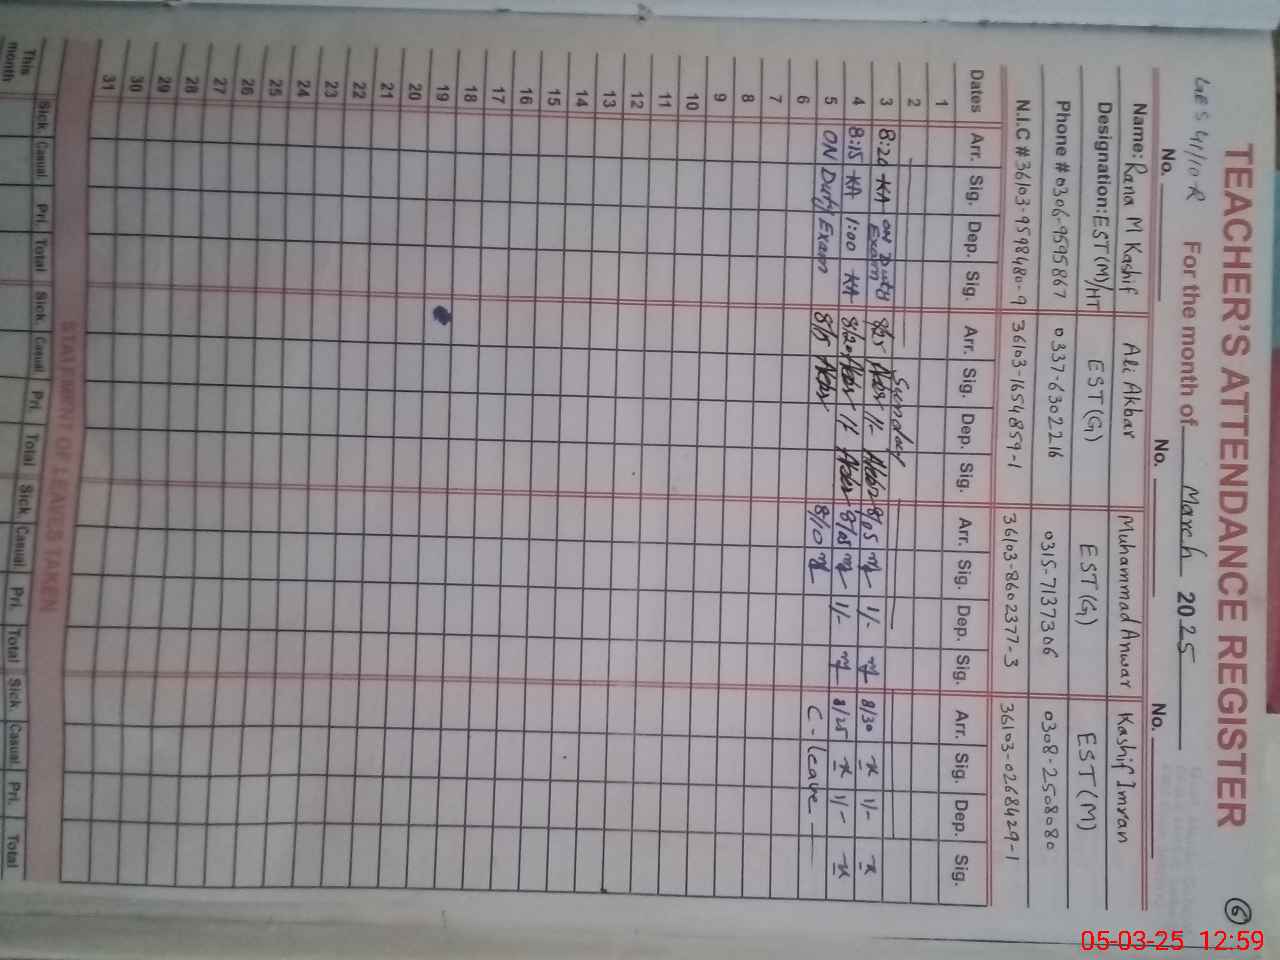 TEACHER'S ATTENDANCE REGISTER 6
GES 41/10-R For the month of March 2025
No. No. No.
Name: Rana M Kashif Ali Akbar Muhammad Anwar Kashif Imran
Designation: EST(M)/HT EST(G) EST(G) EST(M)
Phone # 0306-9595867 0337-6302216 0315-7137306 0308-2508080
N.I.C # 36103-9598480-9 36103-1654859-1 36103-8602377-3 36103-0268429-1
Dates Arr. Sig. Dep. Sig. Arr. Sig. Dep. Sig. Arr. Sig. Dep. Sig. Arr. Sig. Dep. Sig.
1
2 Sunday
3 8:20 KA ON Duty Exam 8/25 Akbar 1/- Akbar 8/05 1/- 8/30 K 1/- K
4 8:15 KA 1:00 KA 8/20 Akbar 1/ Akbar 8/05 1/- 8/25 K 1/- K
5 ON Duty Exam 8/5 Akbar 8/10 C-leave
6
7
8
9
10
11
12
13
14
15
16
17
18
19
20
21
22
23
24
25
26
27
28
29
30
31
STATEMENT OF LEAVES TAKEN
Sick. Casual. Pri. Total Sick. Casual Pri. Total Sick. Casual. Pri. Total Sick. Casual. Pri. Total
This month
05-03-25 12:59